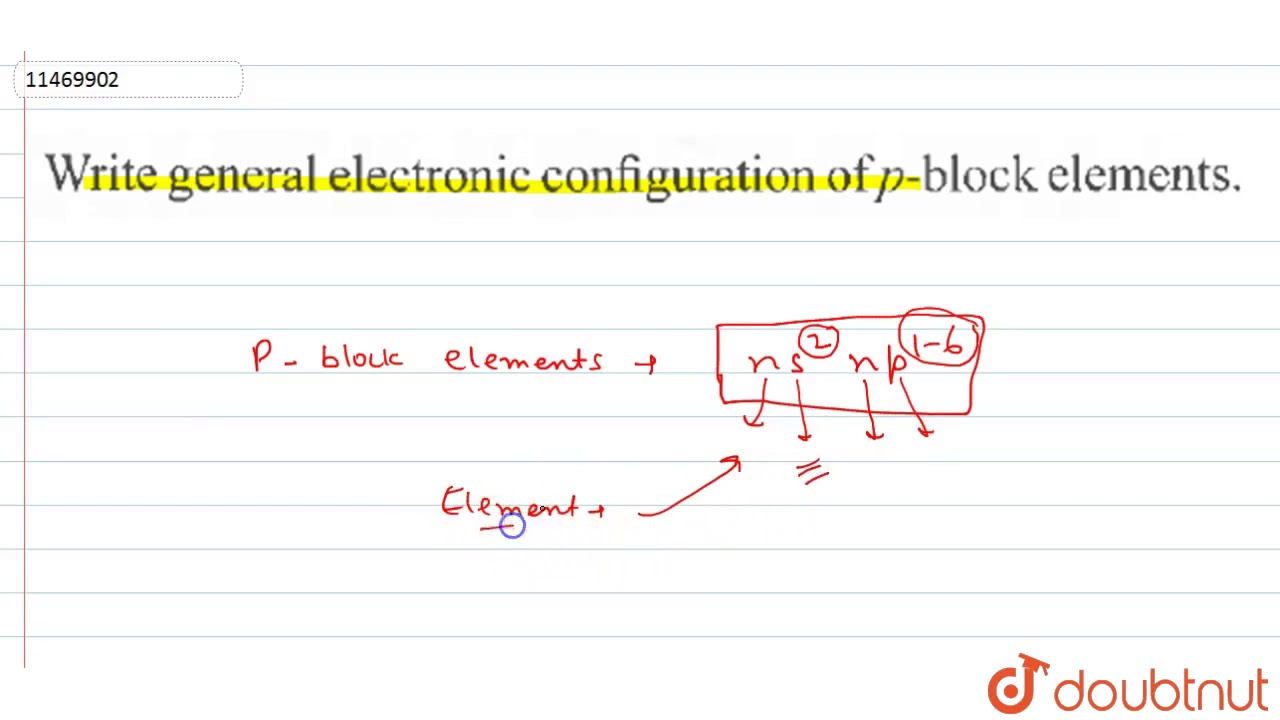 11469902
Write general electronic configuration of p-block elements.
P - block elements → ns² np¹⁻⁶
Element →
doubtnut